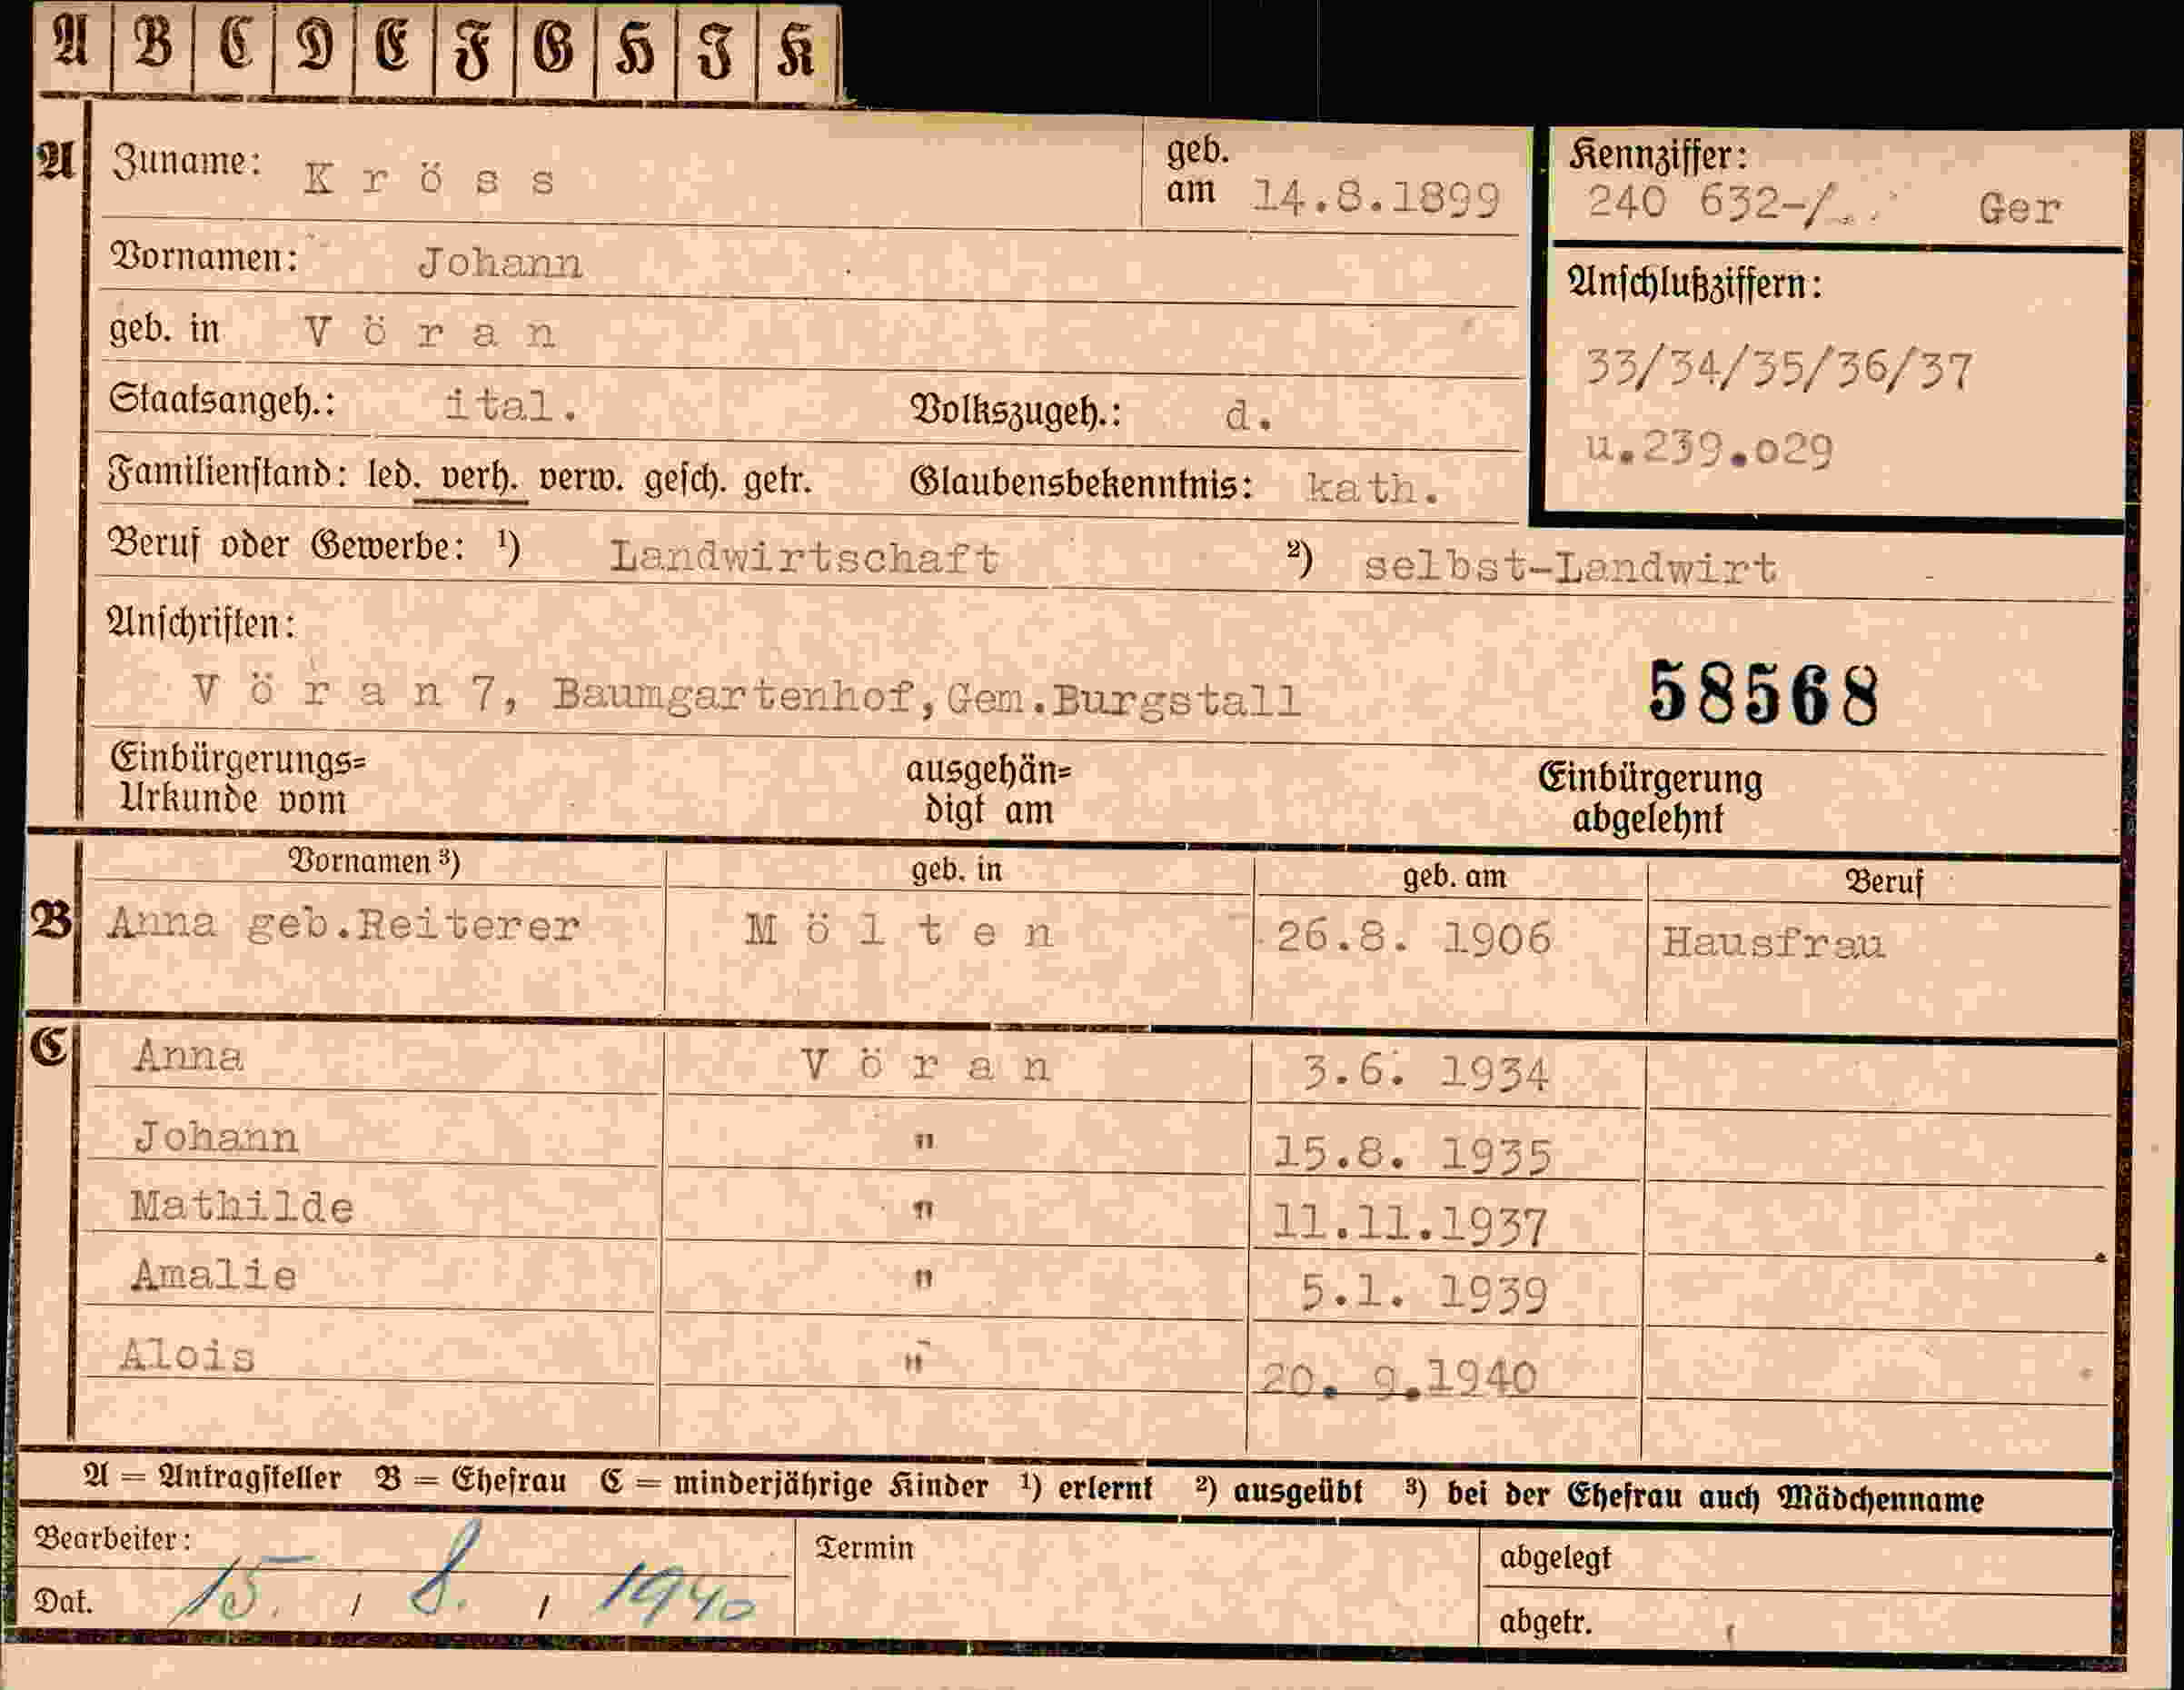 A B C D E F G H I K
A Zuname: Kröss geb. am 14.8.1899
Kennziffer: 240 632-/ Ger
Vornamen: Johann
Anschlußziffern:
geb. in Vöran
33/34/35/36/37
Staatsangeh.: ital. Volkszugeh.: d.
u.239.029
Familienstand: led. verh. verw. gesch. getr. Glaubensbekenntnis: kath.
Beruf oder Gewerbe: ¹) Landwirtschaft ²) selbst-Landwirt
Anschriften:
Vöran 7, Baumgartenhof, Gem.Burgstall 58568
Einbürgerungs= ausgehän= Einbürgerung
Urkunde vom digt am abgelehnt
Vornamen ³) geb. in geb. am Beruf
B Anna geb.Reiterer Mölten 26.8. 1906 Hausfrau
C Anna Vöran 3.6. 1934
Johann " 15.8. 1935
Mathilde " 11.11.1937
Amalie " 5.1. 1939
Alois " 20. 9.1940
A = Antragsteller B = Ehefrau C = minderjährige Kinder ¹) erlernt ²) ausgeübt ³) bei der Ehefrau auch Mädchenname
Bearbeiter: Termin abgelegt
Dat. 15. / 8. / 1940 abgetr.